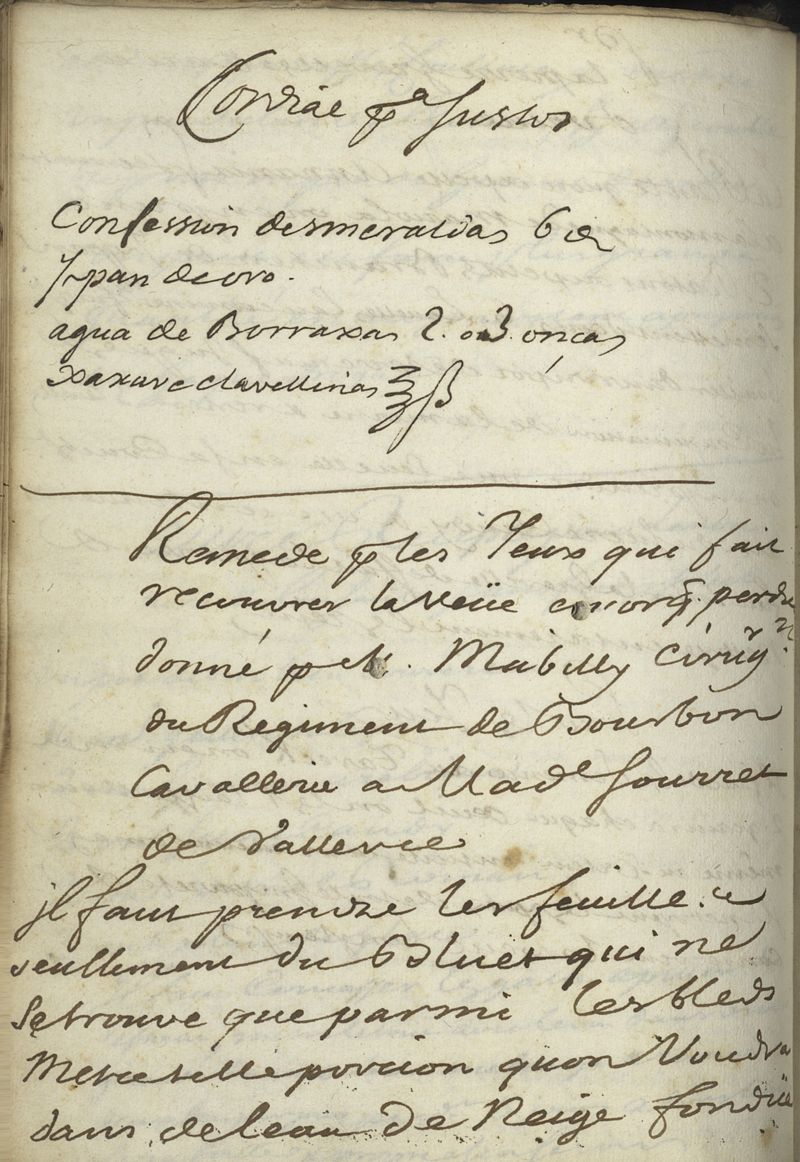 Cordial pª Sustos
Confession desmeraldas 6 d
y pan de oro.
agua de Borraxas 2. o 3 onças
xaxave clavellinas ʒβ
Remede p les Yeux qui fait
recouvrer la veüe encorq̃ perdue
donné p M. Mabilly Cirugⁿ
du Regiment de Bourbon
Cavallerie a Madˡᵉ Sourret
de Vallence
jl faut prendre les feuille
seullement du Bluet qui ne
se trouve que parmi les bleds
Metre telle porcion quon Voudra
dans de leau de Neige fondüe